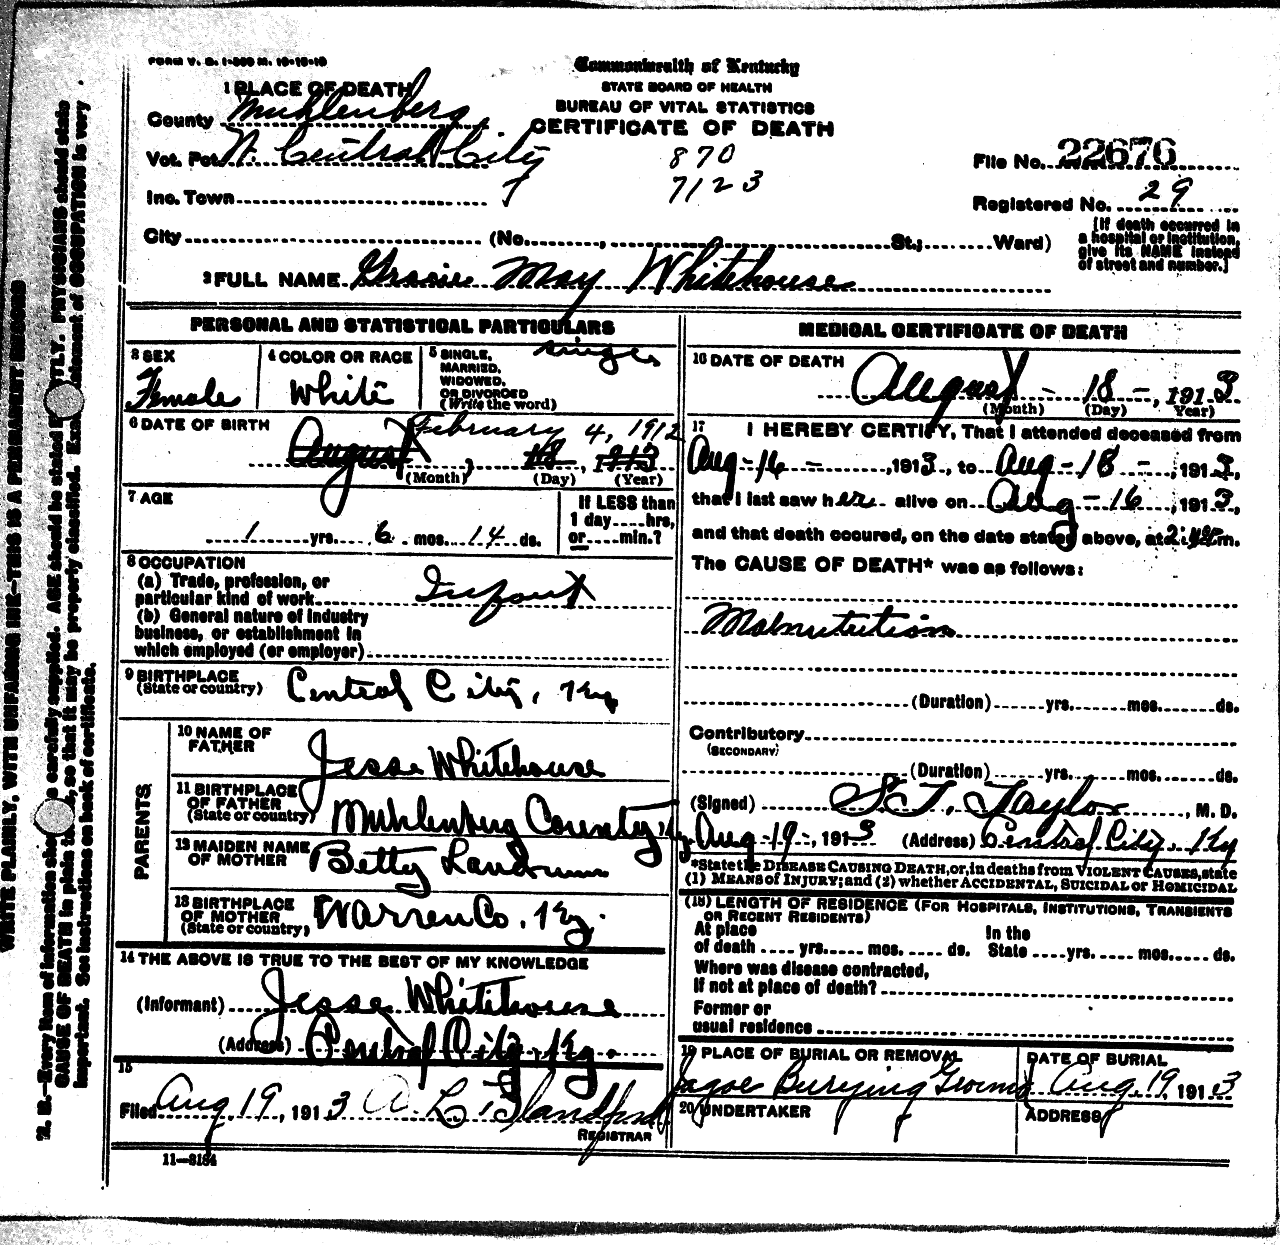 FORM V. S. 1-300 M. 10-10-10
Commonwealth of Kentucky
STATE BOARD OF HEALTH
BUREAU OF VITAL STATISTICS
CERTIFICATE OF DEATH
1 PLACE OF DEATH
County Muhlenberg
Vot. Pct. N. Central City
870
7123
File No. 22676
Inc. Town
Registered No. 29
City (No. , St.; Ward)
[If death occurred in
a hospital or institution,
give its NAME instead
of street and number.]
2 FULL NAME Gracie May Whitehouse
PERSONAL AND STATISTICAL PARTICULARS
3 SEX
Female
4 COLOR OR RACE
White
5 SINGLE,
MARRIED,
WIDOWED,
OR DIVORCED
(Write the word)
single
6 DATE OF BIRTH
February 4, 1912
August 18, 1913
(Month) (Day) (Year)
7 AGE
1 yrs. 6 mos. 14 ds.
If LESS than
1 day....hrs,
or....min.?
8 OCCUPATION
(a) Trade, profession, or
particular kind of work Infant
(b) General nature of industry
business, or establishment in
which employed (or employer)
9 BIRTHPLACE
(State or country) Central City, Ky
PARENTS
10 NAME OF
FATHER Jesse Whitehouse
11 BIRTHPLACE
OF FATHER
(State or country) Muhlenburg County, Ky
12 MAIDEN NAME
OF MOTHER Betty Landrum
13 BIRTHPLACE
OF MOTHER
(State or country) Warren Co. Ky.
14 THE ABOVE IS TRUE TO THE BEST OF MY KNOWLEDGE
(Informant) Jesse Whitehouse
(Address) Central City, Ky.
15
Filed Aug 19, 1913 A. L.
REGISTRAR
11—3184
MEDICAL CERTIFICATE OF DEATH
16 DATE OF DEATH
August - 18 -, 1913
(Month) (Day) Year)
17 I HEREBY CERTIFY, That I attended deceased from
Aug - 16 - , 1913, to Aug - 18 - , 1913,
that I last saw her alive on Aug - 16 , 1913,
and that death occured, on the date stated above, at 2: m.
The CAUSE OF DEATH* was as follows:
Malnutution
(Duration) yrs. mos. ds.
Contributory
(SECONDARY)
(Duration) yrs. mos. ds.
(Signed) S. T. Taylor, M. D.
Aug - 19 -, 1913 (Address) Central City, Ky
*State the DISEASE CAUSING DEATH, or, in deaths from VIOLENT CAUSES, state
(1) MEANS of INJURY; and (2) whether ACCIDENTAL, SUICIDAL or HOMICIDAL
(18) LENGTH OF RESIDENCE (FOR HOSPITALS, INSTITUTIONS, TRANSIENTS
OR RECENT RESIDENTS)
At place In the
of death .... yrs. mos. ds. State yrs. mos. ds.
Where was disease contracted,
If not at place of death?
Former or
usual residence
19 PLACE OF BURIAL OR REMOVAL
Jagoe Burrying Ground
DATE OF BURIAL
Aug. 19, 1913
20 UNDERTAKER
ADDRESS
WRITE PLAINLY, WITH UNFADING INK—THIS IS A PERMANENT RECORD
N. B.—Every item of information should be carefully supplied. AGE should be stated EXACTLY. PHYSICIANS should state
CAUSE OF DEATH in plain terms, so that it may be properly classified. Exact statement of OCCUPATION is very
important. See instructions on back of certificate.